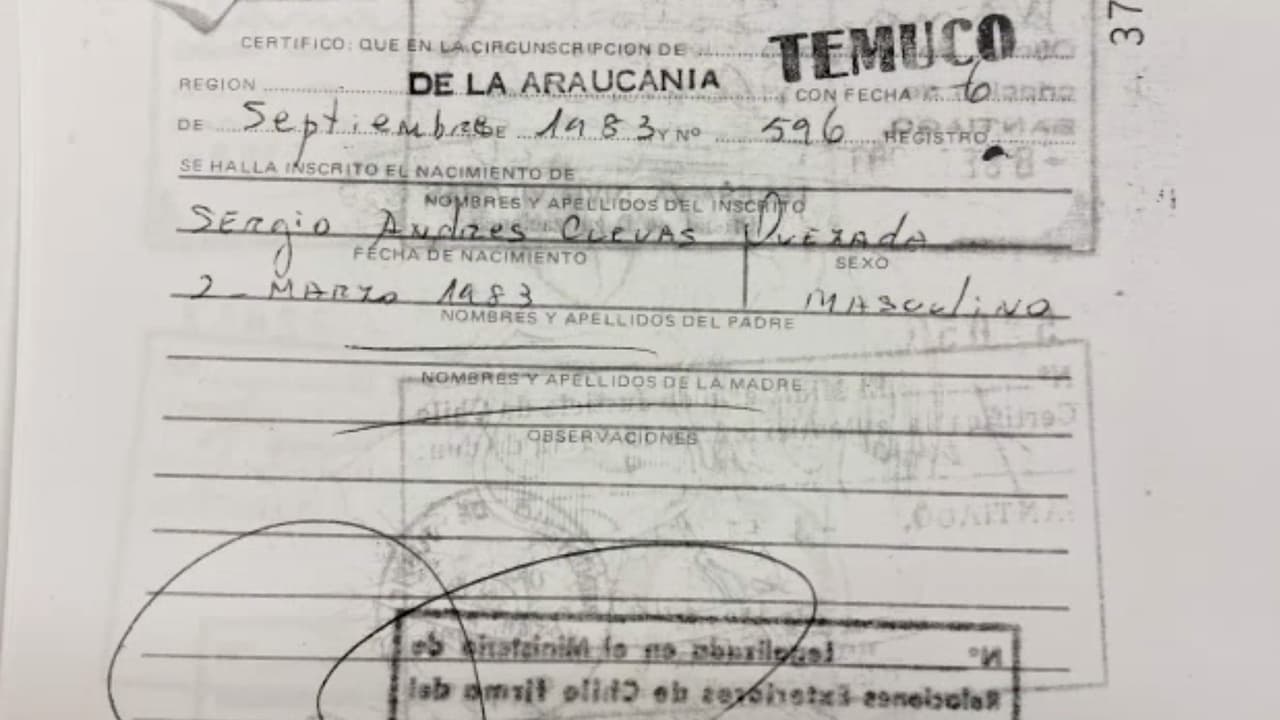 CERTIFICO: QUE EN LA CIRCUNSCRIPCION DE TEMUCO
REGION DE LA ARAUCANIA CON FECHA 6
DE Septiembre DE 1983 Y Nº 596 REGISTRO
SE HALLA INSCRITO EL NACIMIENTO DE
NOMBRES Y APELLIDOS DEL INSCRITO
Sergio Andres Cuevas Quezada
FECHA DE NACIMIENTO SEXO
2 - Marzo 1983 Masculino
NOMBRES Y APELLIDOS DEL PADRE
NOMBRES Y APELLIDOS DE LA MADRE
OBSERVACIONES
Nº
Certifica
SANTIAGO,
Nº Legalizada en el Ministerio de
Relaciones Exteriores de Chile firma del
37